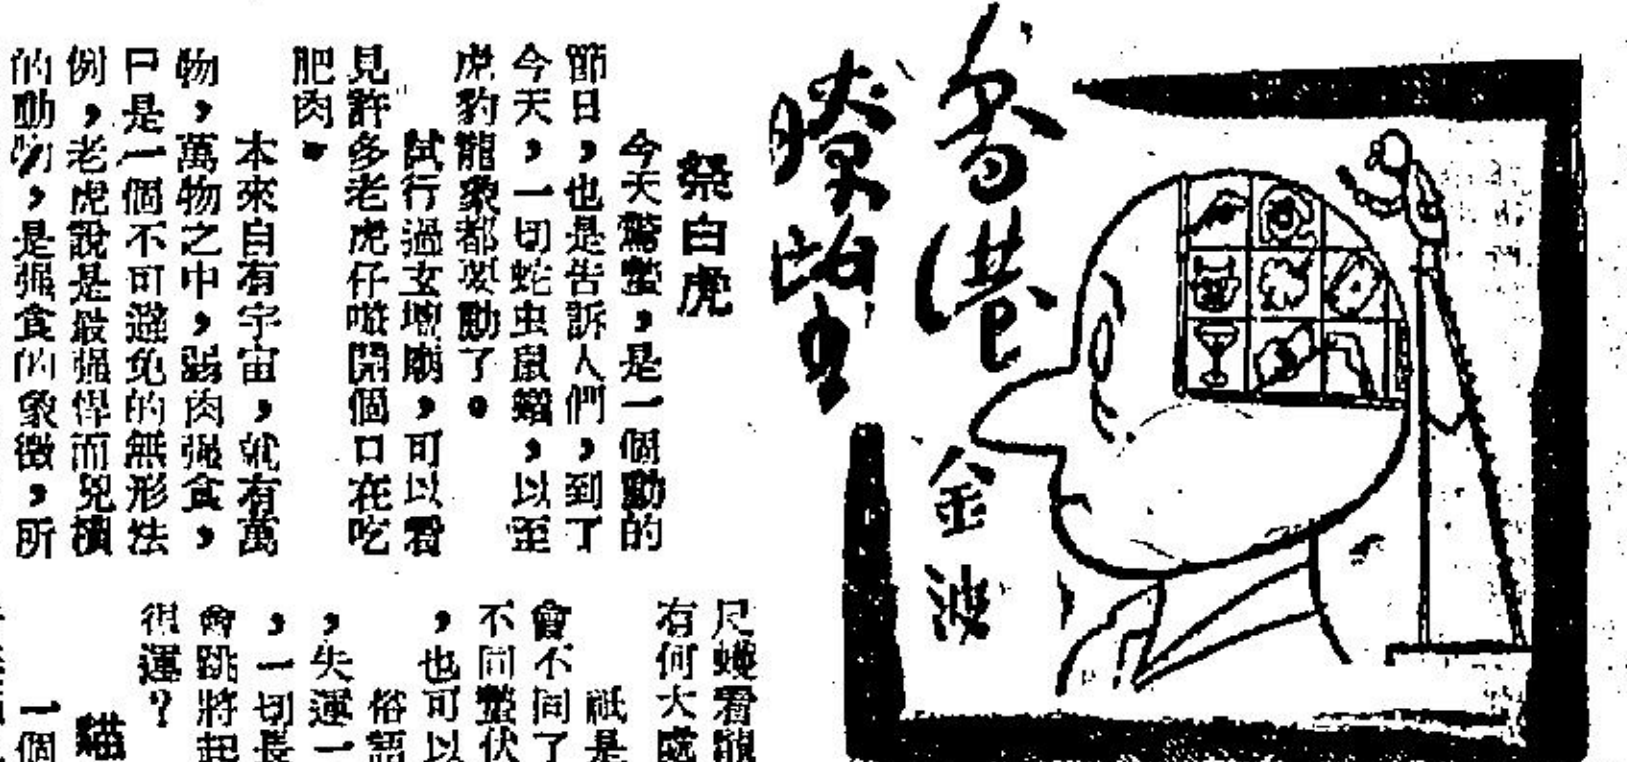 香港
瞭望
金波
祭白虎
今天驚蟄，是一個動的
節日，也是告訴人們，到了
今天，一切蛇虫鼠蟻，以至
虎豹龍象都要動了。
試行過玄壇廟，可以看
見許多老虎仔噉開個口在吃
肥肉。
本來自有宇宙，就有萬
物，萬物之中，弱肉强食，
已是一個不可避免的無形法
例，老虎說是最强悍而兇橫
的動物，是强食的象徵，所
尺蠖看龍
有何大
祇是
會不同了
不同蟄伏
，也可以
俗語
，失運一
，一切長
會跳將起
很運？
貓
一個